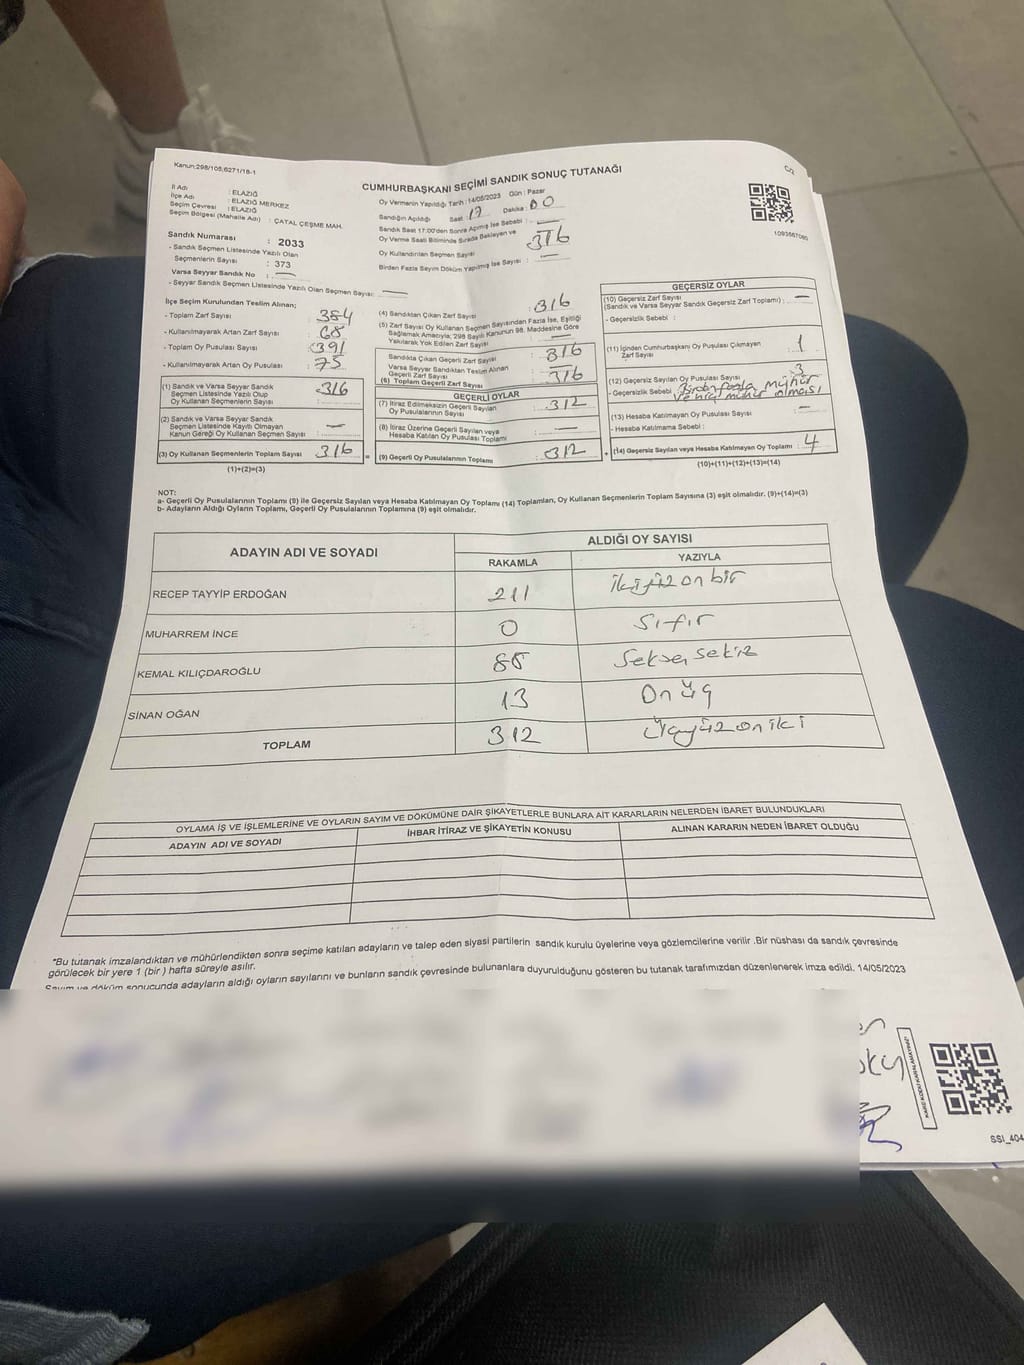 Kanun:298/105,6271/18-1
C/2
CUMHURBAŞKANI SEÇİMİ SANDIK SONUÇ TUTANAĞI
İl Adı : ELAZIĞ
İlçe Adı : ELAZIĞ MERKEZ
Seçim Çevresi : ELAZIĞ
Seçim Bölgesi (Mahalle Adı) : ÇATAL ÇEŞME MAH.
Sandık Numarası : 2033
- Sandık Seçmen Listesinde Yazılı Olan
Seçmenlerin Sayısı : 373
Varsa Seyyar Sandık No : —
- Seyyar Sandık Seçmen Listesinde Yazılı Olan Seçmen Sayısı: —
Oy Vermenin Yapıldığı Tarih : 14/05/2023 Gün : Pazar
Sandığın Açıldığı Saat : 17 Dakika : 00
Sandık Saat 17:00'den Sonra Açılmış İse Sebebi : —
Oy Verme Saati Bitiminde Sırada Bekleyen ve
Oy Kullandırılan Seçmen Sayısı 316
Birden Fazla Sayım Döküm Yapılmış İse Sayısı : —
1093567060
İlçe Seçim Kurulundan Teslim Alınan;
- Toplam Zarf Sayısı : 384
- Kullanılmayarak Artan Zarf Sayısı : 68
- Toplam Oy Pusulası Sayısı : 391
- Kullanılmayarak Artan Oy Pusulası : 75
(1) Sandık ve Varsa Seyyar Sandık
Seçmen Listesinde Yazılı Olup
Oy Kullanan Seçmenlerin Sayısı : 316
(2) Sandık ve Varsa Seyyar Sandık
Seçmen Listesinde Kayıtlı Olmayan
Kanun Gereği Oy Kullanan Seçmen Sayısı : —
(3) Oy Kullanan Seçmenlerin Toplam Sayısı : 316
(1)+(2)=(3)
(4) Sandıktan Çıkan Zarf Sayısı : 316
(5) Zarf Sayısı Oy Kullanan Seçmen Sayısından Fazla İse, Eşitliği
Sağlamak Amacıyla, 298 Sayılı Kanunun 98. Maddesine Göre
Yakılarak Yok Edilen Zarf Sayısı : —
Sandıkta Çıkan Geçerli Zarf Sayısı : 316
Varsa Seyyar Sandıktan Teslim Alınan
Geçerli Zarf Sayısı : —
(6) Toplam Geçerli Zarf Sayısı : 316
GEÇERLİ OYLAR
(7) İtiraz Edilmeksizin Geçerli Sayılan
Oy Pusulalarının Sayısı : 312
(8) İtiraz Üzerine Geçerli Sayılan veya
Hesaba Katılan Oy Pusulası Toplamı : —
= (9) Geçerli Oy Pusulalarının Toplamı : 312
GEÇERSİZ OYLAR
(10) Geçersiz Zarf Sayısı
(Sandık ve Varsa Seyyar Sandık Geçersiz Zarf Toplamı) : —
- Geçersizlik Sebebi :
(11) İçinden Cumhurbaşkanı Oy Pusulası Çıkmayan
Zarf Sayısı : 1
(12) Geçersiz Sayılan Oy Pusulası Sayısı : 3
- Geçersizlik Sebebi : Birden fazla mühür
ve hiç mühür olması
(13) Hesaba Katılmayan Oy Pusulası Sayısı : —
- Hesaba Katılmama Sebebi :
+ (14) Geçersiz Sayılan veya Hesaba Katılmayan Oy Toplamı : 4
(10)+(11)+(12)+(13)=(14)
NOT:
a- Geçerli Oy Pusulalarının Toplamı (9) ile Geçersiz Sayılan veya Hesaba Katılmayan Oy Toplamı (14) Toplamları, Oy Kullanan Seçmenlerin Toplam Sayısına (3) eşit olmalıdır. (9)+(14)=(3)
b- Adayların Aldığı Oyların Toplamı, Geçerli Oy Pusulalarının Toplamına (9) eşit olmalıdır.
ADAYIN ADI VE SOYADI ALDIĞI OY SAYISI
RAKAMLA YAZIYLA
RECEP TAYYİP ERDOĞAN 211 ikiyüzonbir
MUHARREM İNCE 0 Sıfır
KEMAL KILIÇDAROĞLU 88 Seksensekiz
SİNAN OĞAN 13 Onüç
TOPLAM 312 Üçyüzoniki
OYLAMA İŞ VE İŞLEMLERİNE VE OYLARIN SAYIM VE DÖKÜMÜNE DAİR ŞİKAYETLERLE BUNLARA AİT KARARLARIN NELERDEN İBARET BULUNDUKLARI
ADAYIN ADI VE SOYADI İHBAR İTİRAZ VE ŞİKAYETİN KONUSU ALINAN KARARIN NEDEN İBARET OLDUĞU
*Bu tutanak imzalandıktan ve mühürlendikten sonra seçime katılan adayların ve talep eden siyasi partilerin sandık kurulu üyelerine veya gözlemcilerine verilir .Bir nüshası da sandık çevresinde
görülecek bir yere 1 (bir ) hafta süreyle asılır.
Sayım ve döküm sonucunda adayların aldığı oyların sayılarını ve bunların sandık çevresinde bulunanlara duyurulduğunu gösteren bu tutanak tarafımızdan düzenlenerek imza edildi. 14/05/2023
KARE KODU KARALAMAYINIZ!
SSI_404